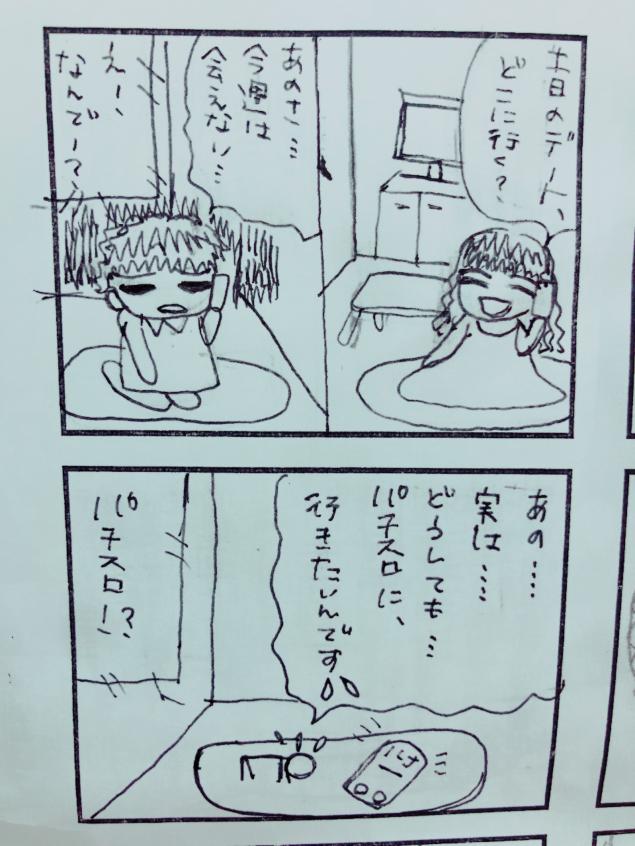 土日のデート、
どこに行く？
あのさ…
今週は
会えない…
えー、
なんでー？
あの…
実は…
どうしても…
パチスロに、
行きたいんです
パチスロ！？